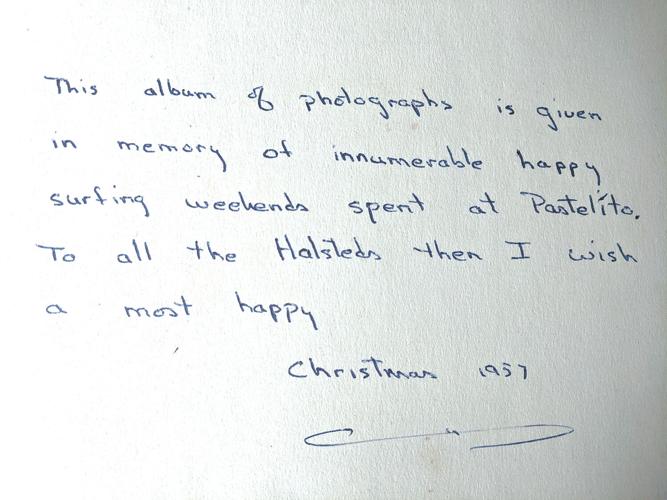 This album of photographs is given
in memory of innumerable happy
surfing weekends spent at Pastelito.
To all the Halsteds then I wish
a most happy
Christmas 1957